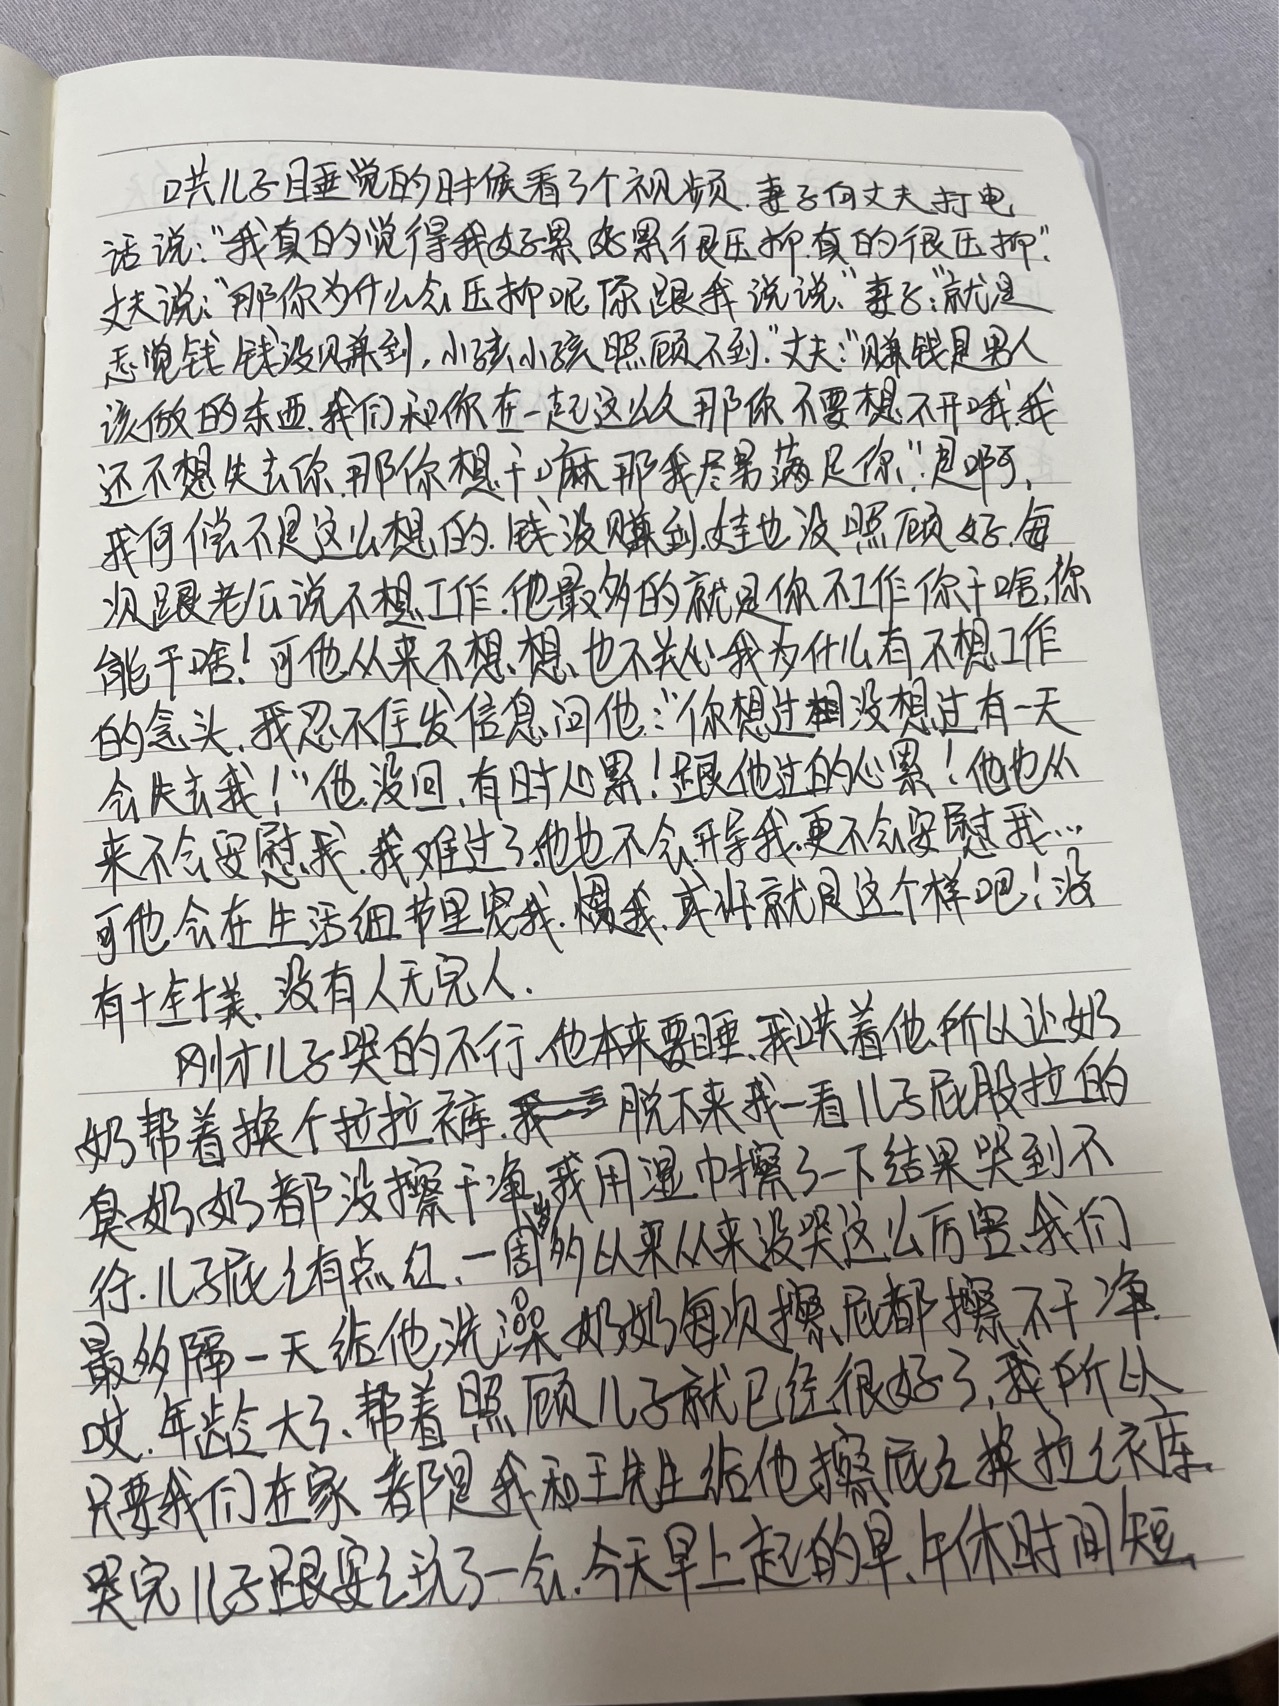 哄儿子睡觉的时候看了个视频.妻子向丈夫打电
话说:"我真的觉得我好累好累很压抑.真的很压抑".
丈夫说:"那你为什么会压抑呢你跟我说说."妻子:"就是
感觉钱钱没赚到,小孩小孩照顾不到."丈夫:"赚钱是男人
该做的东西.我们和你在一起这么久那你不要想不开哦.我
还不想失去你.那你想干嘛那我尽男满足你."是啊,
我何偿不是这么想的.钱没赚到.娃也没照顾好.每
次跟老公说不想工作.他最多的就是你不工作你干啥.你
能干啥!可他从来不想想、也不关心我为什么有不想工作
的念头.我忍不住发信息问他:"你想过没想过有一天
会失去我!"他没回.有时心累!跟他过的心累!他也从
来不会安慰我.我难过了.他也不会开导我.更不会安慰我...
可他会在生活细节里宠我.惯我.或许就是这个样吧!没
有十全十美.没有人无完人.
刚才儿子哭的不行.他本来要睡.我哄着他.所以让奶
奶帮着换个拉拉裤.脱下来我一看儿子屁股拉的
臭.奶奶都没擦干净.我用湿巾擦了一下结果哭到不
行.儿子屁屁有点红.一周岁多以来从来没哭这么厉害、我们
最多隔一天给他洗澡.奶奶每次擦屁都擦不干净.
哎.年龄大了、帮着照顾儿子就已经很好了.我所以
只要我们在家都是我和王先生给他擦屁屁换拉拉裤.
哭完儿子跟安安玩了一会.今天早上起的早、午休时间短.